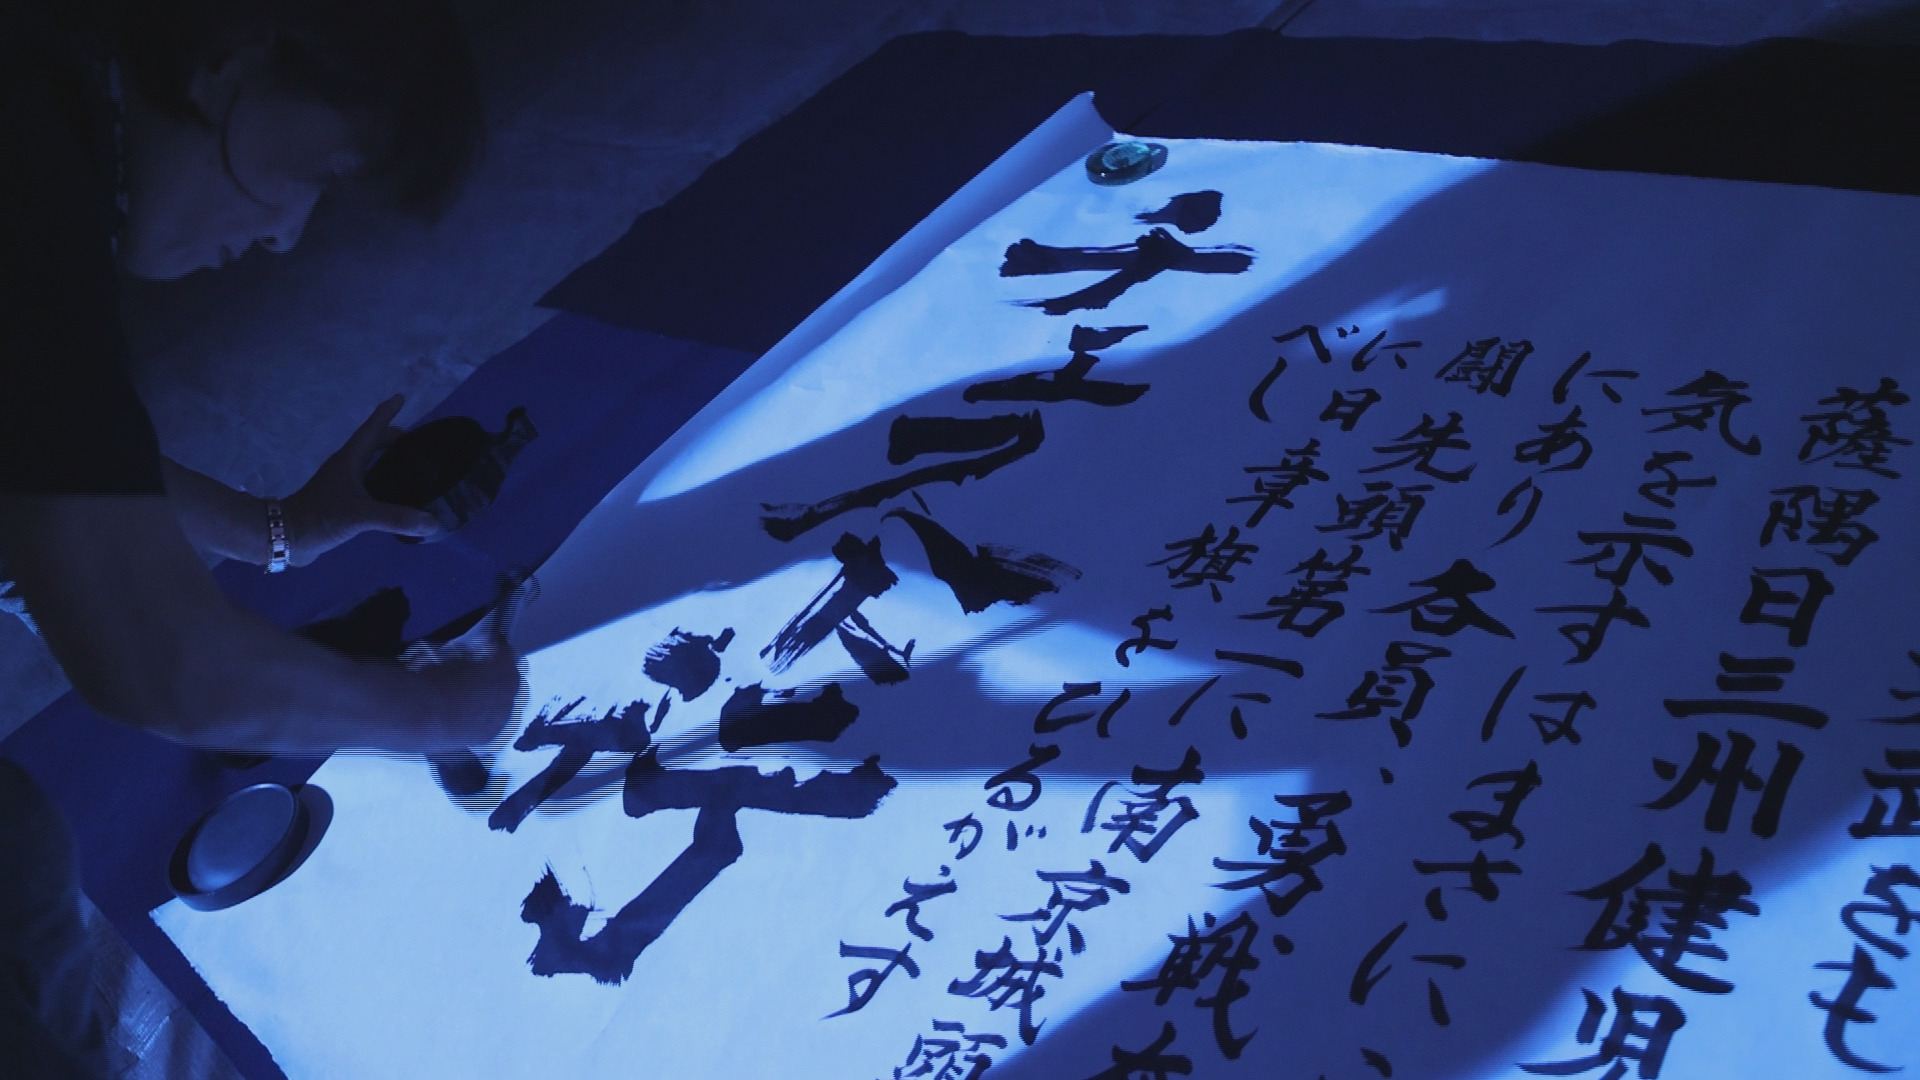 武をも
薩隅日三州健児
気を示すはまさに、
にあり各員、勇戦
闘先頭第一に南京城頭
に日章旗をひるがえす
べし
チェスト行